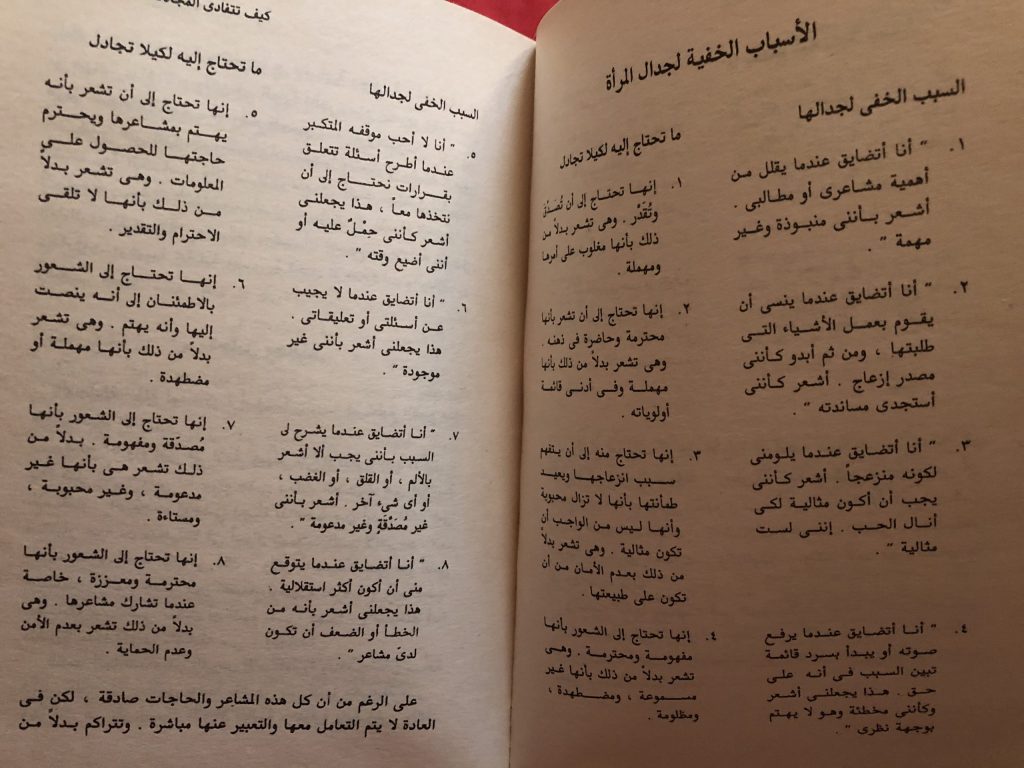 الأسباب الخفية لجدال المرأة
السبب الخفى لجدالها
ما تحتاج إليه لكيلا تجادل
١. " أنا أتضايق عندما يقلل من
أهمية مشاعرى أو مطالبى .
أشعر بأننى منبوذة وغير
مهمة " .
١. إنها تحتاج إلى أن تُصَدَّق
وتُقَدَّر . وهى تشعر بدلاً من
ذلك بأنها مغلوب على أمرها
ومهملة .
٢. " أنا أتضايق عندما ينسى أن
يقوم بعمل الأشياء التى
طلبتها ، ومن ثم أبدو كأننى
مصدر إزعاج . أشعر كأننى
أستجدى مساندته " .
٢. إنها تحتاج إلى أن تشعر بأنها
محترمة وحاضرة فى ذهنه .
وهى تشعر بدلاً من ذلك بأنها
مهملة وفى أدنى قائمة
أولوياته .
٣. " أنا أتضايق عندما يلومنى
لكونه منزعجاً . أشعر كأننى
يجب أن أكون مثالية لكى
أنال الحب . إننى لست
مثالية " .
٣. إنها تحتاج منه إلى أن يتفهم
سبب انزعاجها ويعيد
طمأنتها بأنها لا تزال محبوبة
وأنها ليس من الواجب أن
تكون مثالية . وهى تشعر بدلاً
من ذلك بعدم الأمان من أن
تكون على طبيعتها .
٤. " أنا أتضايق عندما يرفع
صوته أو يبدأ بسرد قائمة
تبين السبب فى أنه على
حق . هذا يجعلنى أشعر
وكأننى مخطئة وهو لا يهتم
بوجهة نظرى " .
٤. إنها تحتاج إلى الشعور بأنها
مفهومة ومحترمة . وهى
تشعر بدلاً من ذلك بأنها غير
مسموعة ، ومضطهدة ،
ومظلومة .
كيف تتفادى
السبب الخفى لجدالها
ما تحتاج إليه لكيلا تجادل
٥. " أنا لا أحب موقفه المتكبر
عندما أطرح أسئلة تتعلق
بقرارات نحتاج إلى أن
نتخذها معاً ، هذا يجعلنى
أشعر كأننى حِمْلٌ عليه أو
أننى أضيع وقته " .
٥. إنها تحتاج إلى أن تشعر بأنه
يهتم بمشاعرها ويحترم
حاجتها للحصول على
المعلومات . وهى تشعر بدلاً
من ذلك بأنها لا تلقى
الاحترام والتقدير .
٦. " أنا أتضايق عندما لا يجيب
عن أسئلتى أو تعليقاتى .
هذا يجعلنى أشعر بأننى غير
موجودة " .
٦. إنها تحتاج إلى الشعور
بالاطمئنان إلى أنه ينصت
إليها وأنه يهتم . وهى تشعر
بدلاً من ذلك بأنها مهملة أو
مضطهدة .
٧. " أنا أتضايق عندما يشرح لى
السبب بأننى يجب ألا أشعر
بالألم ، أو القلق ، أو الغضب ،
أو أى شىء آخر . أشعر بأننى
غير مُصَدَّقَةٍ وغير مدعومة " .
٧. إنها تحتاج إلى الشعور بأنها
مُصدَقة ومفهومة . بدلاً من
ذلك تشعر هى بأنها غير
مدعومة ، وغير محبوبة ،
ومستاءة .
٨. " أنا أتضايق عندما يتوقع
منى أن أكون أكثر استقلالية ،
هذا يجعلنى أشعر بأنه من
الخطأ أو الضعف أن تكون
لدىّ مشاعر " .
٨. إنها تحتاج إلى الشعور بأنها
محترمة ومعززة ، خاصة
عندما تشارك مشاعرها . وهى
بدلاً من ذلك تشعر بعدم الأمن
وعدم الحماية .
على الرغم من أن كل هذه المشاعر والحاجات صادقة ، لكن فى
العادة لا يتم التعامل معها والتعبير عنها مباشرة . وتتراكم بدلاً من